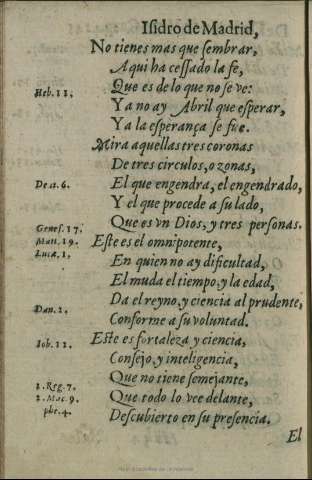 Isidro de Madrid,
No tienes mas que sembrar,
Aqui ha cessado la fe,
Heb. 11. Que es de lo que no se ve:
Ya no ay Abril que esperar,
Ya la esperança se fue.
Mira aquellas tres coronas
De tres circulos, o zonas,
Deut. 6. El que engendra, el engendrado,
Y el que procede a su lado,
Genes. 17. Que es vn Dios, y tres personas.
Matt. 19. Este es el omnipotente,
Luca. 1. En quien no ay dificultad,
El muda el tiempo, y la edad,
Dan. 2. Da el reyno, y ciencia al prudente,
Conforme a su voluntad.
Iob. 12. Este es fortaleza y ciencia,
Consejo, y inteligencia,
Que no tiene semejante,
2. Reg. 7. Que todo lo vee delante,
2. Mac. 9.
Descubierto en su presencia.
El